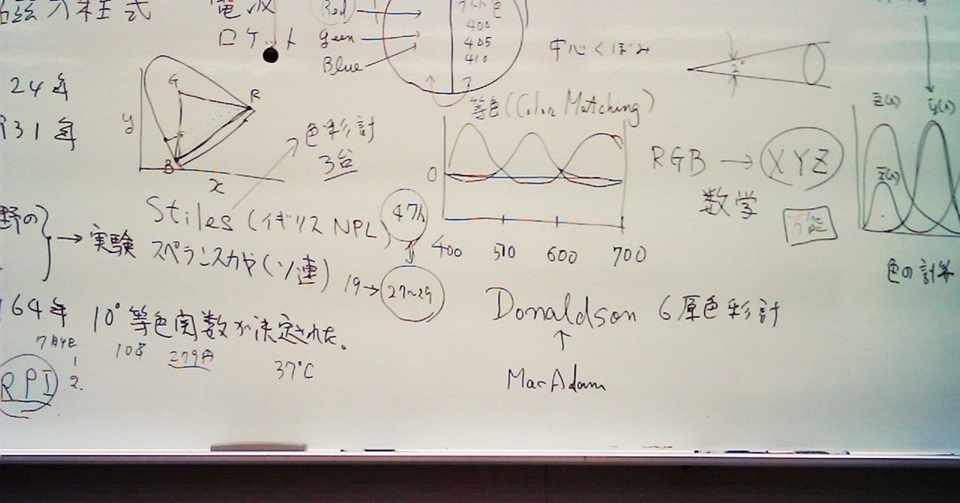 電波
ロケット
Red
Green
Blue
400
405
410
?
中心くぼみ
2°
24年
931年
y
G
R
B
x
色彩計
3台
等色(Color Matching)
0
400
510
600
700
RGB → XYZ
数学
z(λ)
y(λ)
z(λ)
色の計算
野の
→ 実験
Stiles (イギリス NPL)
スペランスカヤ (ソ連)
47人
19→27~29
64年 10°等色関数が決定された。
7月4日
10多
279円
37°C
1
2.
RPI
Donaldson 6原色彩計
↑
MacAdam